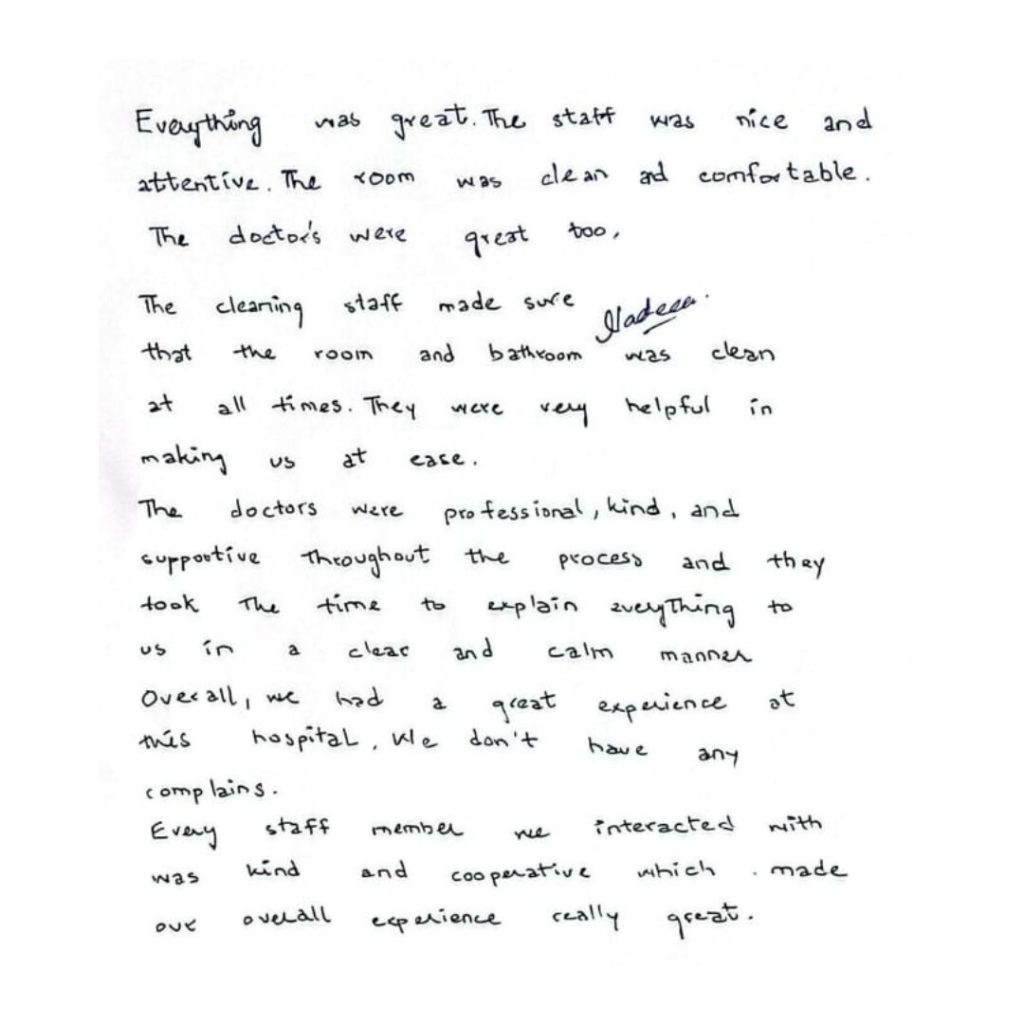 Everything was great. The staff was nice and
attentive. The room was clean ad comfortable.
The doctor's were great too,
The cleaning staff made sure
that the room and bathroom was clean
at all times. They were very helpful in
making us at ease.
The doctors were professional, kind, and
supportive throughout the process and they
took the time to explain everything to
us in a clear and calm manner
Overall, we had a great experience at
this hospital. We don't have any
complains.
Every staff member we interacted with
was kind and cooperative which made
our overall experience really great.